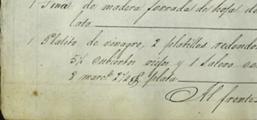 1 de madera forrada de hoja de
lata
1 Platito de vinagre, 2 platillos redondos
5½ cubiertos viejos, y 1 salero
8 marc.^s plata
Al frente